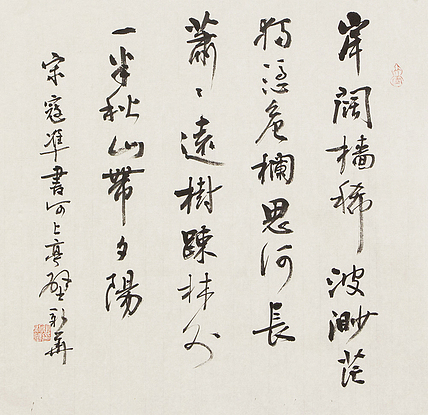 岸闊檣稀波渺茫
獨憑危欄思何長
蕭〻遠樹疎林外
一半秋山帶夕陽
宋寇準書河上亭壁 彩華